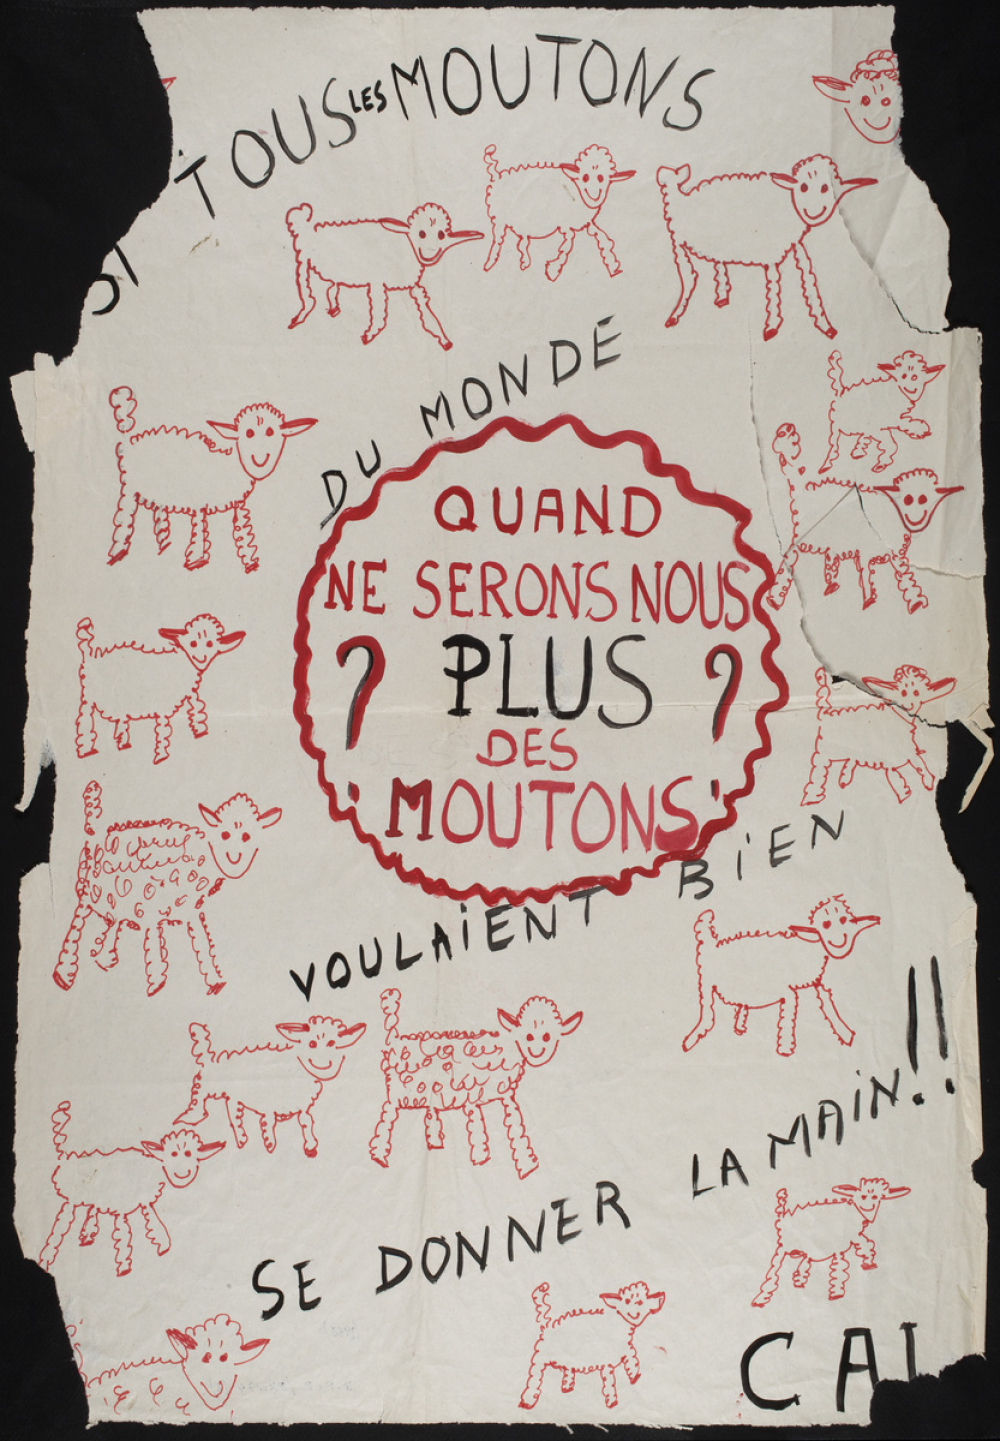 SI TOUS LES MOUTONS
DU MONDE
QUAND
NE SERONS NOUS
? PLUS ?
DES
'MOUTONS'
VOULAIENT BIEN
SE DONNER LA MAIN!!
CA